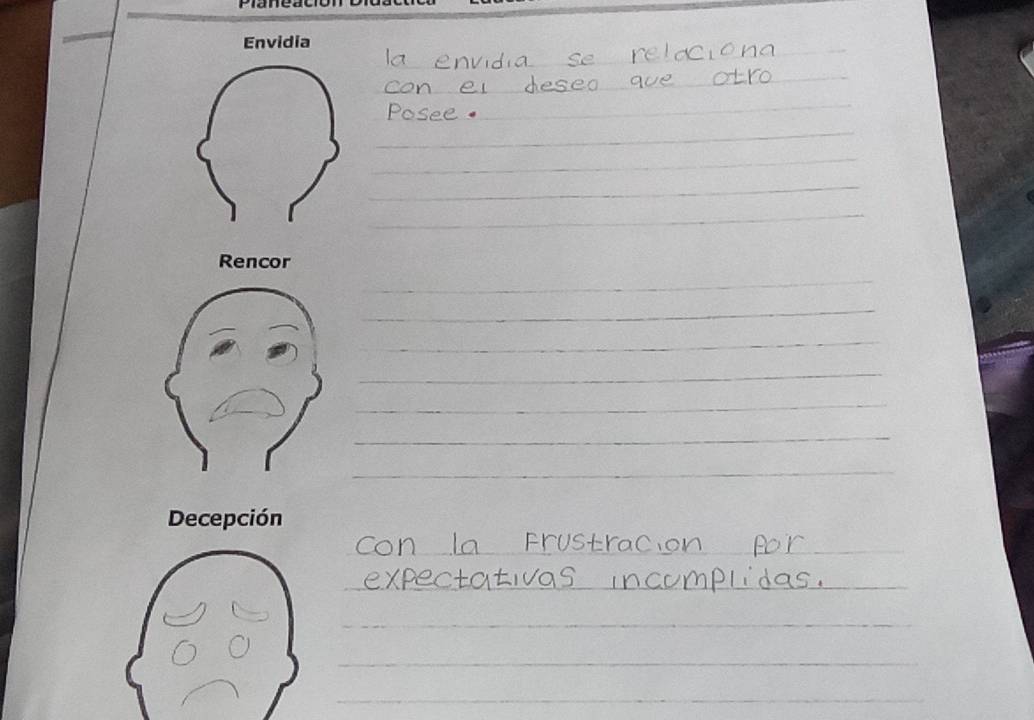 Planeación Didáctica
Envidia
la envidia se relaciona
con el deseo que otro
Posee.
Rencor
Decepción
con la Frustración por
expectativas incumplidas.